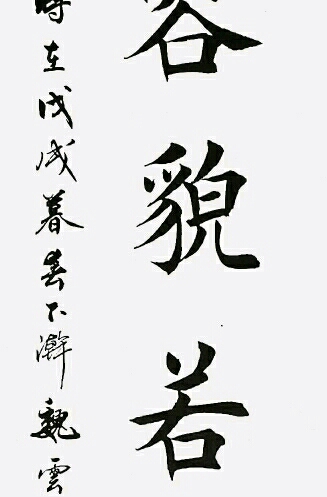 容貌若
時在戊戌暮春下澣魏雲